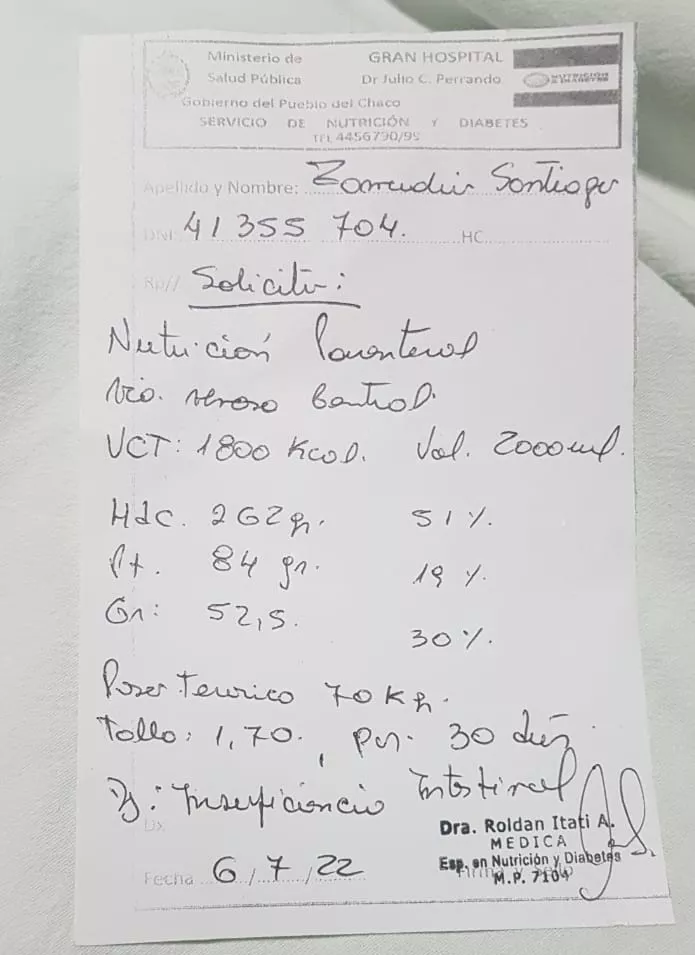 Ministerio de Salud Pública
GRAN HOSPITAL
Dr Julio C. Perrando
NUTRICIÓN & DIABETES
Gobierno del Pueblo del Chaco
SERVICIO DE NUTRICIÓN Y DIABETES
TEL 4456790/95
Apellido y Nombre: Santiago
DNI 41 355 704. HC
Rp// Solicito:
Nutrición Parenteral
Vio. venoso Central.
VCT: 1800 Kcal. Vol. 2000 ml.
Hdc. 262 gr. 51 %.
Pt. 84 gr. 19 %.
Gr: 52,5. 30 %.
Peso teorico 70 Kg.
Talla: 1,70. , por 30 días.
D: Insuficiencia Intestinal
Dx.
Dra. Roldan Itati A.
MEDICA
Esp. en Nutrición y Diabetes
M.P. 7104
Firma y Sello
Fecha 6/7/22